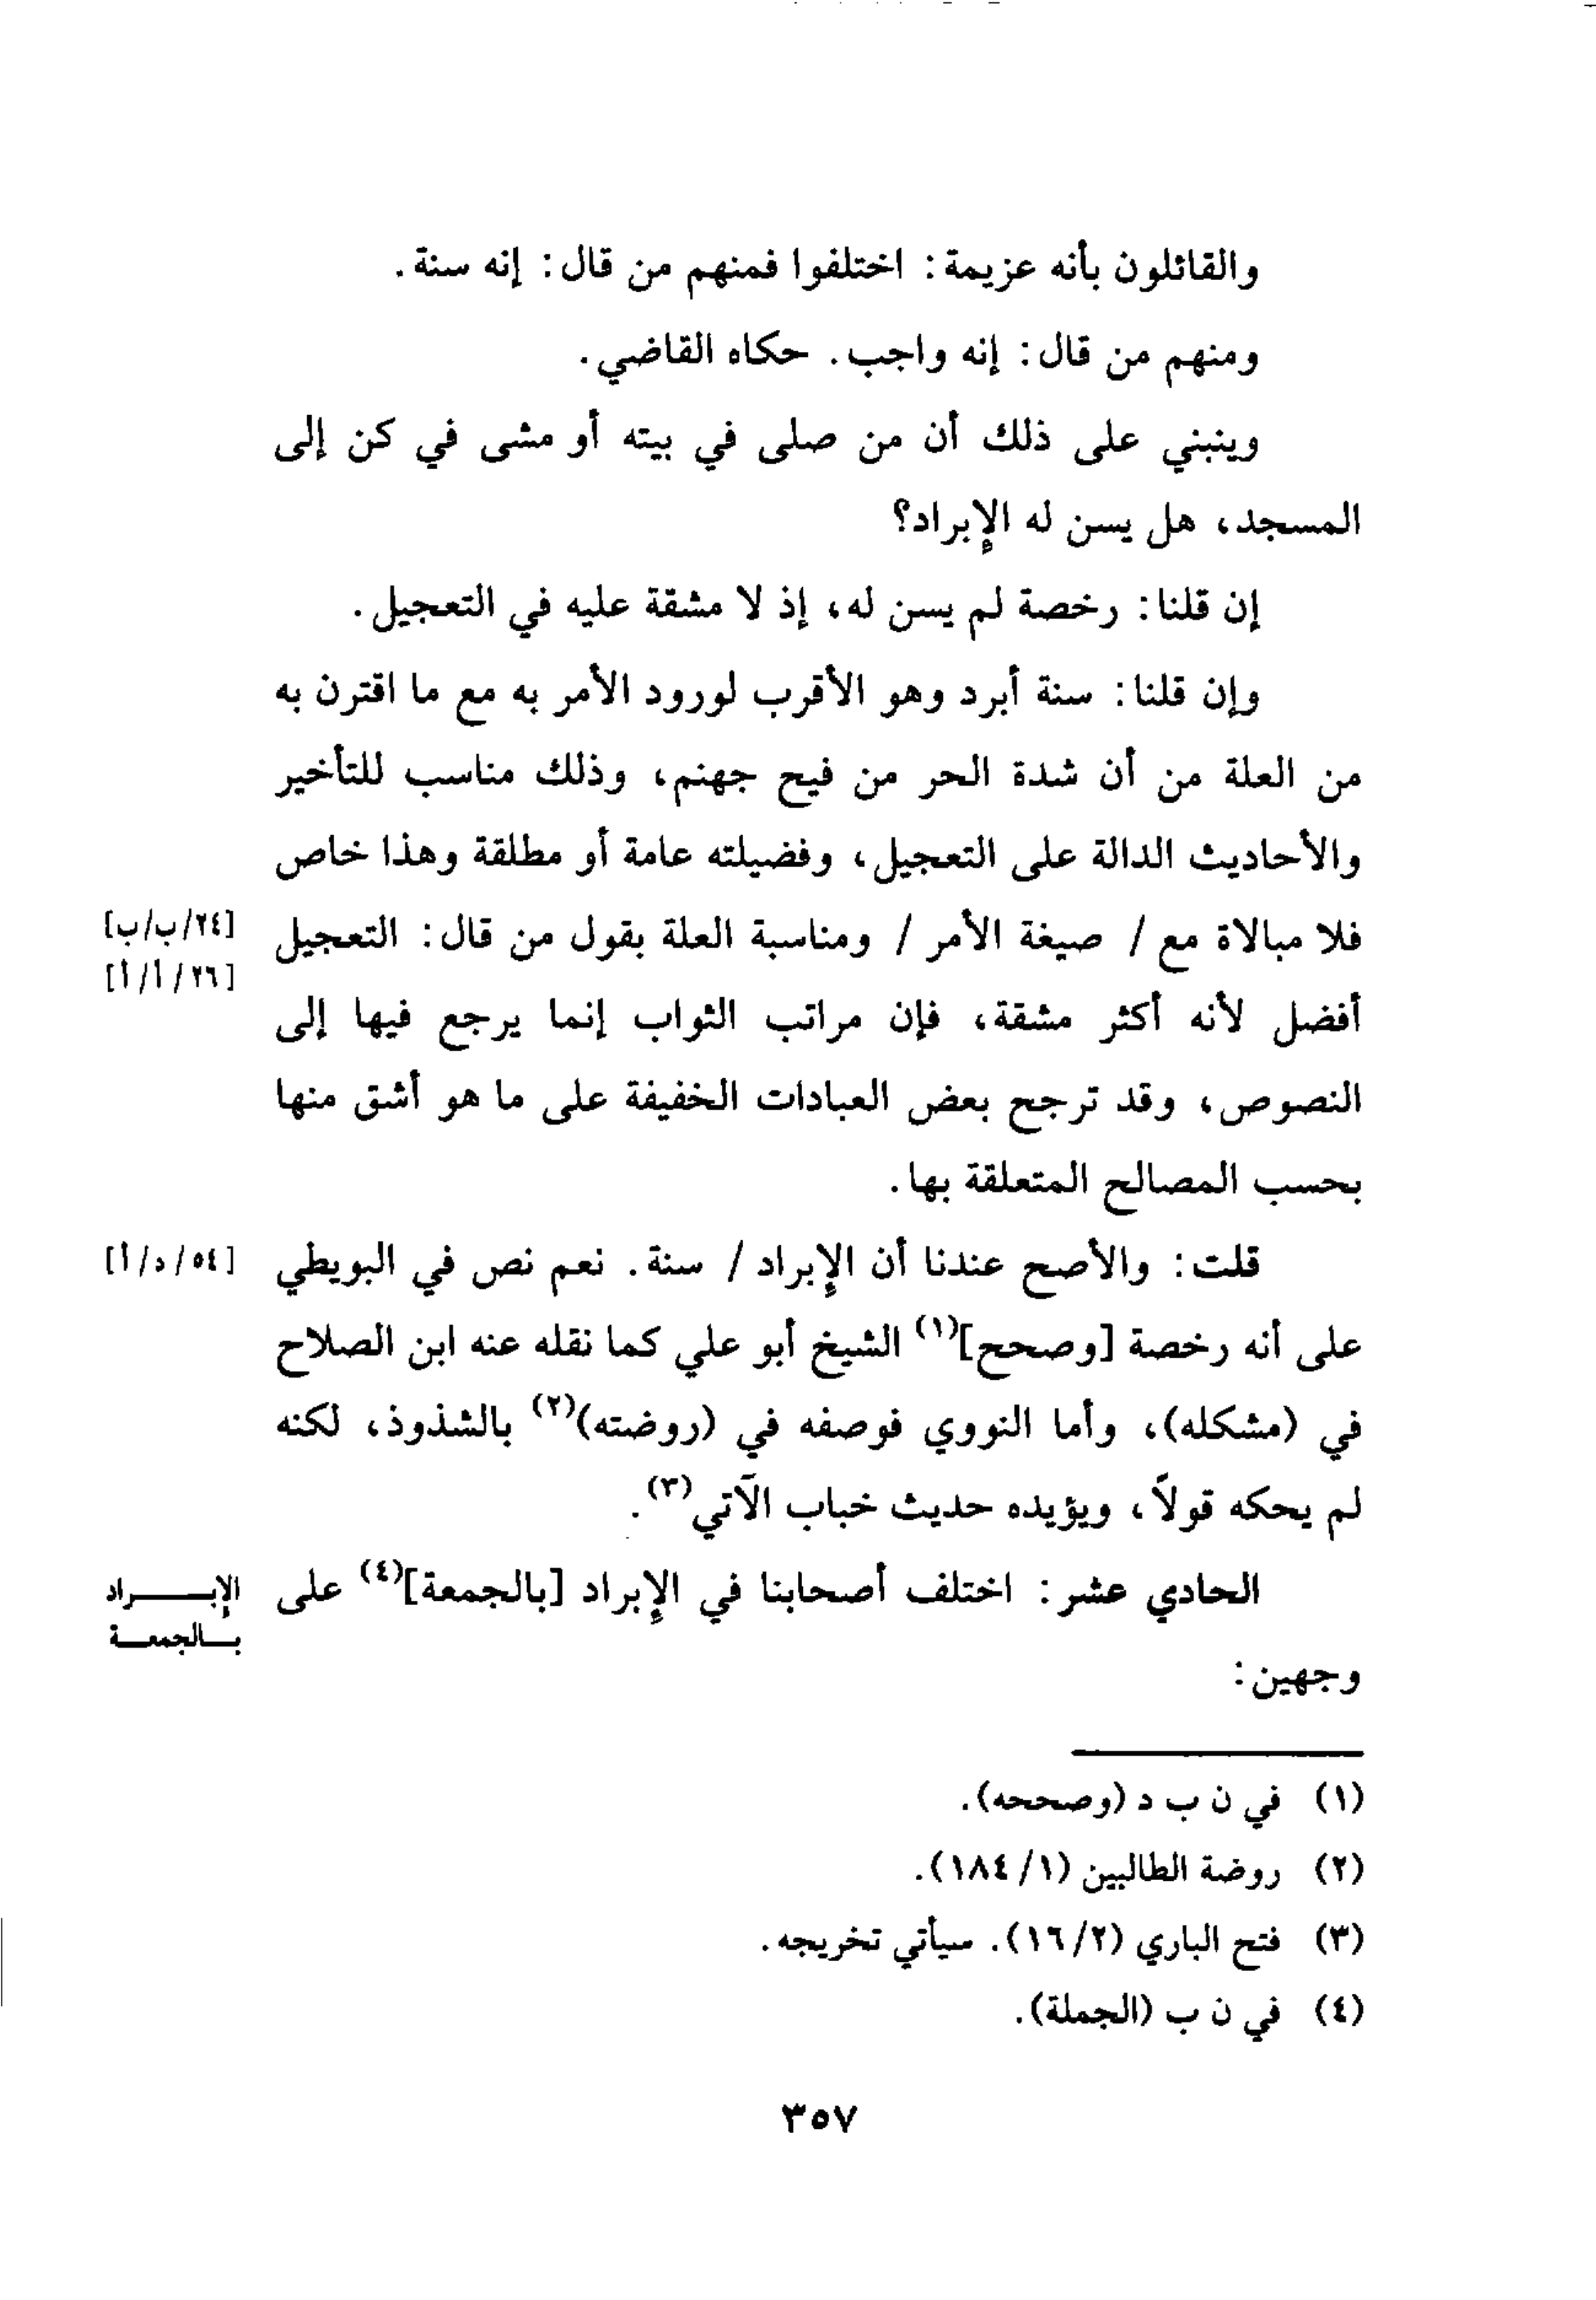 والقائلون بأنه عزيمة: اختلفوا فمنهم من قال: إنه سنة.
ومنهم من قال: إنه واجب. حكاه القاضي.
وينبني على ذلك أن من صلى في بيته أو مشى في كن إلى
المسجد، هل يسن له الإبراد؟
إن قلنا: رخصة لم يسن له، إذ لا مشقة عليه في التعجيل.
وإن قلنا: سنة أبرد وهو الأقرب لورود الأمر به مع ما اقترن به
من العلة من أن شدة الحر من فيح جهنم، وذلك مناسب للتأخير
والأحاديث الدالة على التعجيل، وفضيلته عامة أو مطلقة وهذا خاص
فلا مبالاة مع / صيغة الأمر / ومناسبة العلة بقول من قال: التعجيل [٢٤/ب/ب]
[٢٦/أ/أ]
أفضل لأنه أكثر مشقة، فإن مراتب الثواب إنما يرجع فيها إلى
النصوص، وقد ترجح بعض العبادات الخفيفة على ما هو أشق منها
بحسب المصالح المتعلقة بها.
قلت: والأصح عندنا أن الإبراد / سنة. نعم نص في البويطي [٥٤/د/أ]
على أنه رخصة [وصحح](١) الشيخ أبو علي كما نقله عنه ابن الصلاح
في (مشكله)، وأما النووي فوصفه في (روضته)(٢) بالشذوذ، لكنه
لم يحكه قولاً، ويؤيده حديث خباب الآتي(٣).
الحادي عشر: اختلف أصحابنا في الإبراد [بالجمعة](٤) على الإبـــراد
بـالجمعـة
وجهين:
(١) في ن ب د (وصححه).
(٢) روضة الطالبين (١/ ١٨٤).
(٣) فتح الباري (٢/ ١٦). سيأتي تخريجه.
(٤) في ن ب (الجملة).
٣٥٧